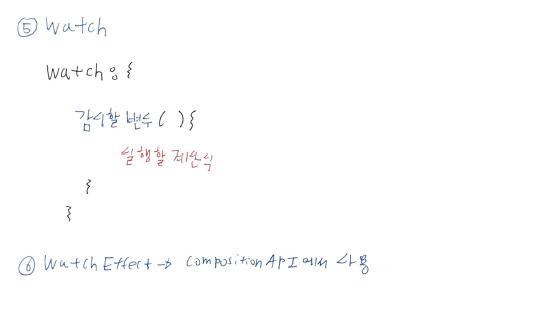 ⑤ Watch
Watch : {
감시할 변수 ( ) {
실행할 계산식
}
}
⑥ Watch Effect → Composition API에서 사용